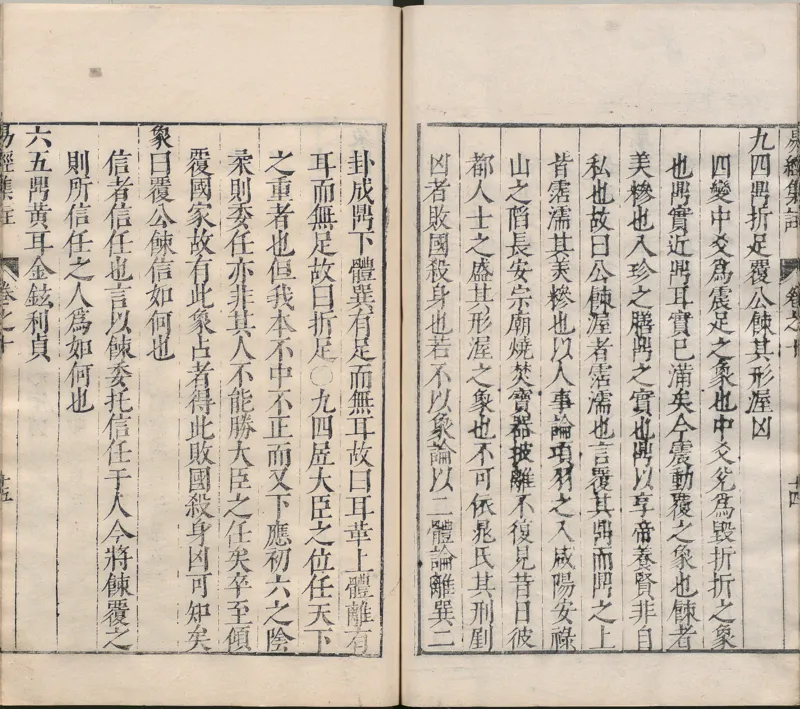 易經集註 卷之十 十四
九四鼎折足覆公餗其形渥凶
四變中爻爲震足之象也中爻兌爲毀折折之象
也鼎實近鼎耳實已滿矣今震動覆之象也餗者
美糝也八珍之膳鼎之實也鼎以享帝養賢非自
私也故曰公餗渥者霑濡也言覆其鼎而鼎之上
皆霑濡其美糝也以人事論項羽之入咸陽安祿
山之陷長安宗廟燒焚寶器披離不復見昔日彼
都人士之盛其形渥之象也不可依晁氏其刑剭
凶者敗國殺身也若不以象論以二體論離巽二
卦成鼎下體巽有足而無耳故曰耳革上體離有
耳而無足故曰折足○九四居大臣之位任天下
之重者也但我本不中不正而又下應初六之陰
柔則委任亦非其人不能勝大臣之任矣卒至傾
覆國家故有此象占者得此敗國殺身凶可知矣
象曰覆公餗信如何也
信者信任也言以餗委托信任于人今將餗覆之
則所信任之人爲如何也
六五鼎黃耳金鉉利貞
易經集註 卷之十 十五